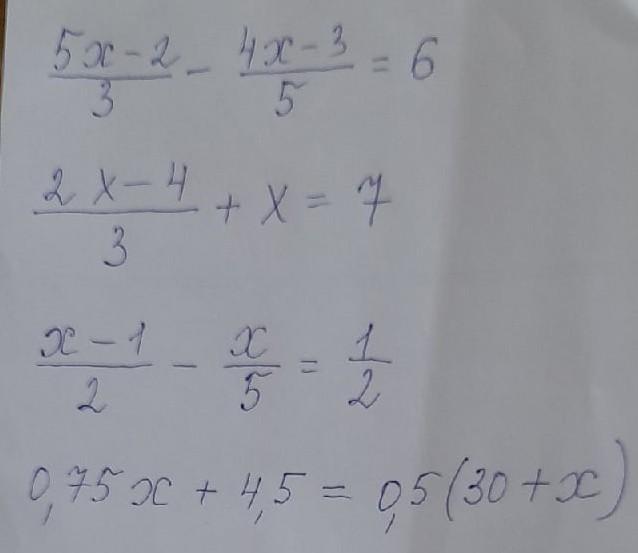 (5x-2)/3 - (4x-3)/5 = 6
(2x-4)/3 + x = 7
(x-1)/2 - x/5 = 1/2
0,75x + 4,5 = 0,5(30+x)